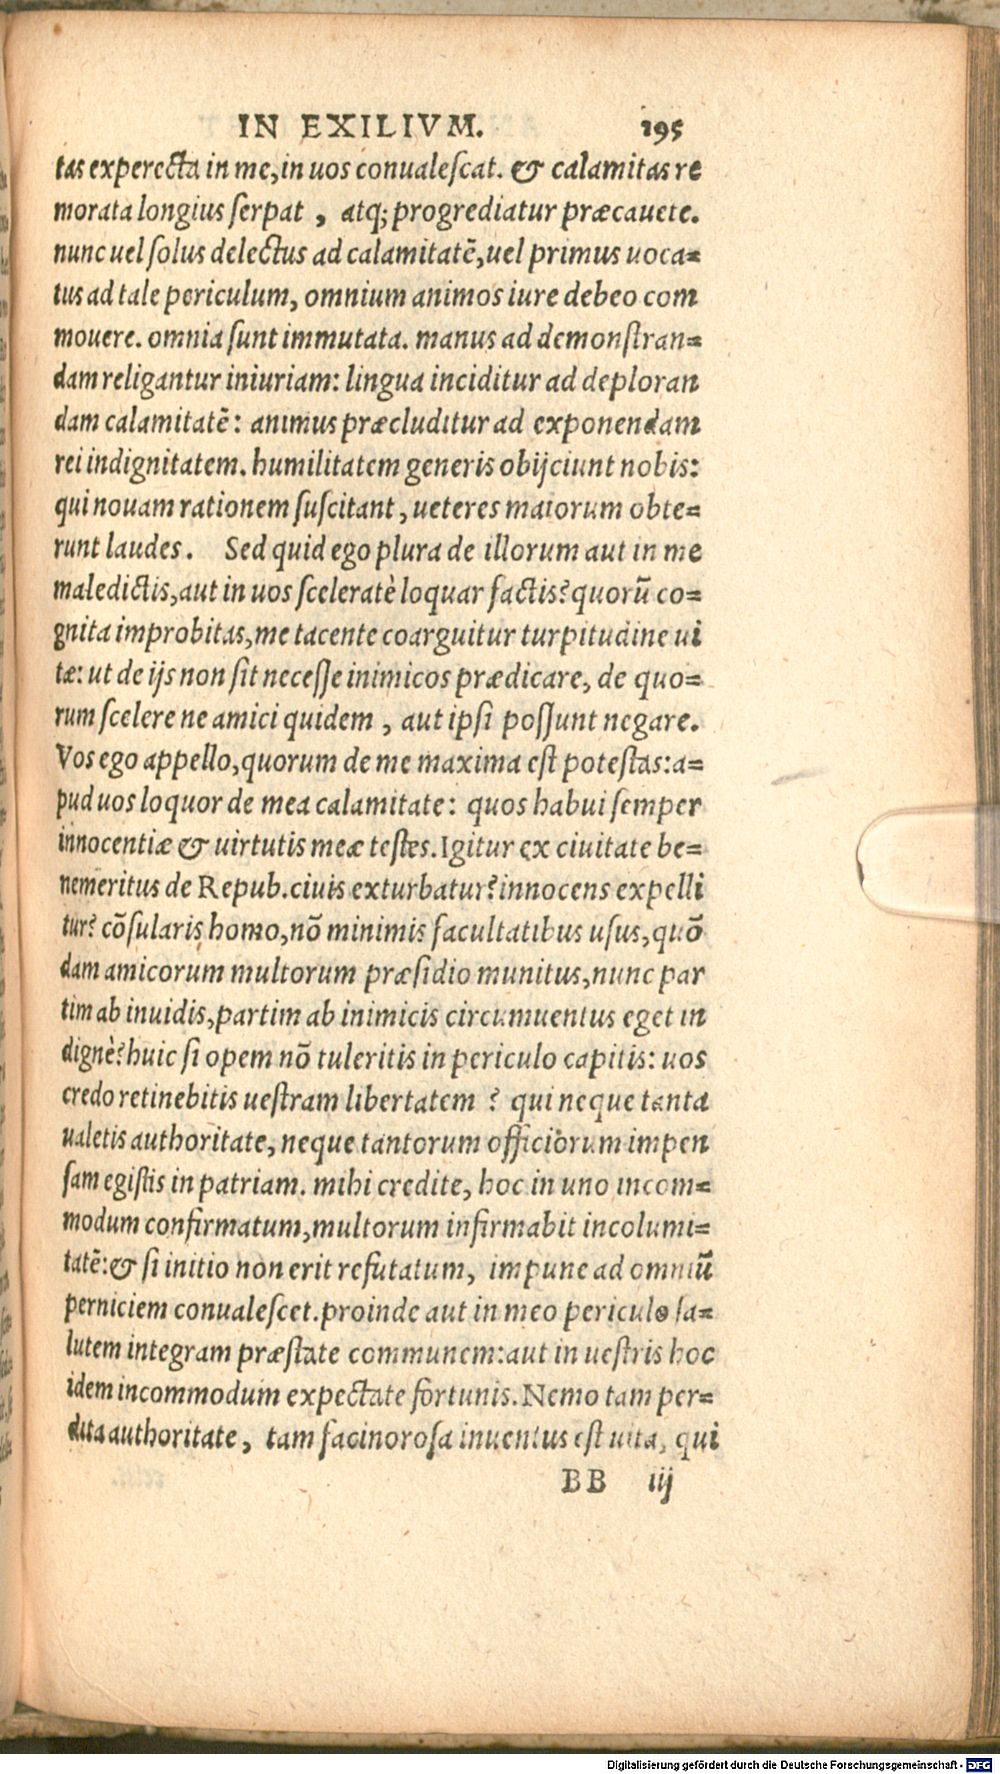 IN EXILIVM. 195
tas experecta in me, in uos conualeſcat. & calamitas re
morata longius ſerpat , atq; progrediatur præcauete.
nunc uel ſolus delectus ad calamitatē, uel primus uoca-
tus ad tale periculum, omnium animos iure debeo com
mouere. omnia ſunt immutata. manus ad demonſtran-
dam religantur iniuriam: lingua inciditur ad deploran
dam calamitatē: animus præcluditur ad exponendam
rei indignitatem. humilitatem generis obijciunt nobis:
qui nouam rationem ſuſcitant, ueteres maiorum obte-
runt laudes. Sed quid ego plura de illorum aut in me
maledictis, aut in uos ſceleratè loquar factis? quorū co-
gnita improbitas, me tacente coarguitur turpitudine ui
tæ: ut de ijs non ſit neceſſe inimicos prædicare, de quo-
rum ſcelere ne amici quidem , aut ipſi poſſunt negare.
Vos ego appello, quorum de me maxima est poteſtas: a-
pud uos loquor de mea calamitate: quos habui ſemper
innocentiæ & uirtutis meæ teſtes. Igitur ex ciuitate be-
nemeritus de Repub. ciuis exturbatur? innocens expelli
tur? cōſularis homo, nō minimis facultatibus uſus, quō
dam amicorum multorum præſidio munitus, nunc par
tim ab inuidis, partim ab inimicis circumuentus eget in
dignè? huic ſi opem nō tuleritis in periculo capitis: uos
credo retinebitis ueſtram libertatem ? qui neque tanta
ualetis authoritate, neque tantorum officiorum impen
ſam egiſtis in patriam. mihi credite, hoc in uno incom-
modum confirmatum, multorum infirmabit incolumi-
tatē: & ſi initio non erit refutatum, impune ad omniū
perniciem conualeſcet. proinde aut in meo periculo ſa-
lutem integram præſtate communem: aut in ueſtris hoc
idem incommodum expectate fortunis. Nemo tam per-
dita authoritate, tam facinoroſa inuentus eſt uita, qui
BB iij
Digitalisierung gefördert durch die Deutsche Forschungsgemeinschaft - DFG